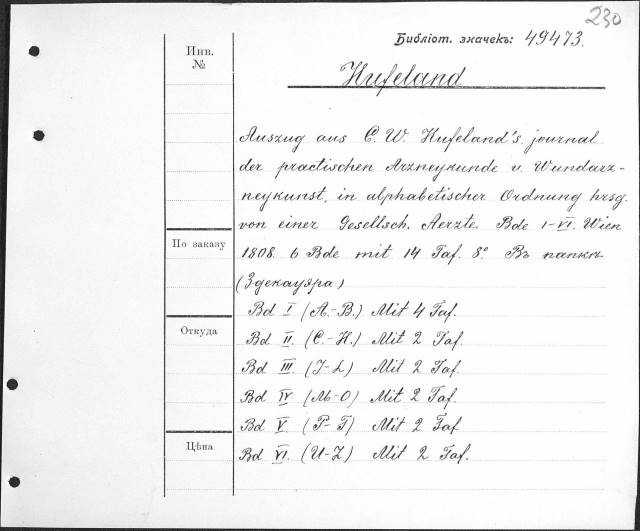 230
Библіот. значекъ: 49473.
Инв.
№
Hufeland
Auszug aus C. W. Hufeland's journal
der practischen Arzneykunde v. Wundarz-
neykunst, in alphabetischer Ordnung hrsg.
von einer Gesellsch. Aerzte. Bde I-VI. Wien
По заказу
1808. 6 Bde mit 14 Taf. 8°. Въ папкѣ
(Здекауэра)
Bd I (A.-B.) Mit 4 Taf.
Откуда
Bd II. (C.-H.) Mit 2 Taf.
Bd III (I-L) Mit 2 Taf.
Bd IV (M-O) Mit 2 Taf.
Bd V (P-T) Mit 2 Taf
Цѣна
Bd VI. (U-Z) Mit 2 Taf.